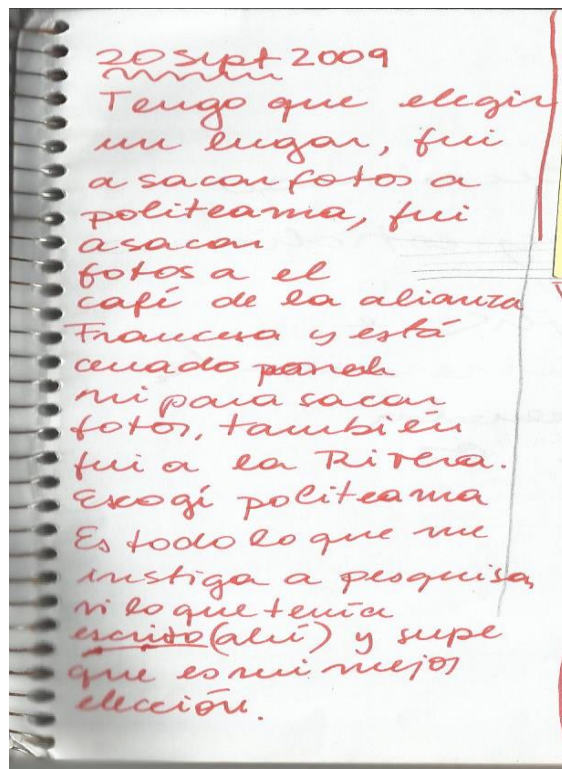 20 Sept 2009
Tengo que elegir
un lugar, fui
a sacar fotos a
politeama, fui
a sacar
fotos a el
café de la alianza
Francesa y está
cerrado
ni para sacar
fotos, también
fui a la Rivera.
Escogí politeama
Es todo lo que me
instiga a pesquisa,
vi lo que tenía
escrito (ahí) y supe
que es mi mejor
elección.